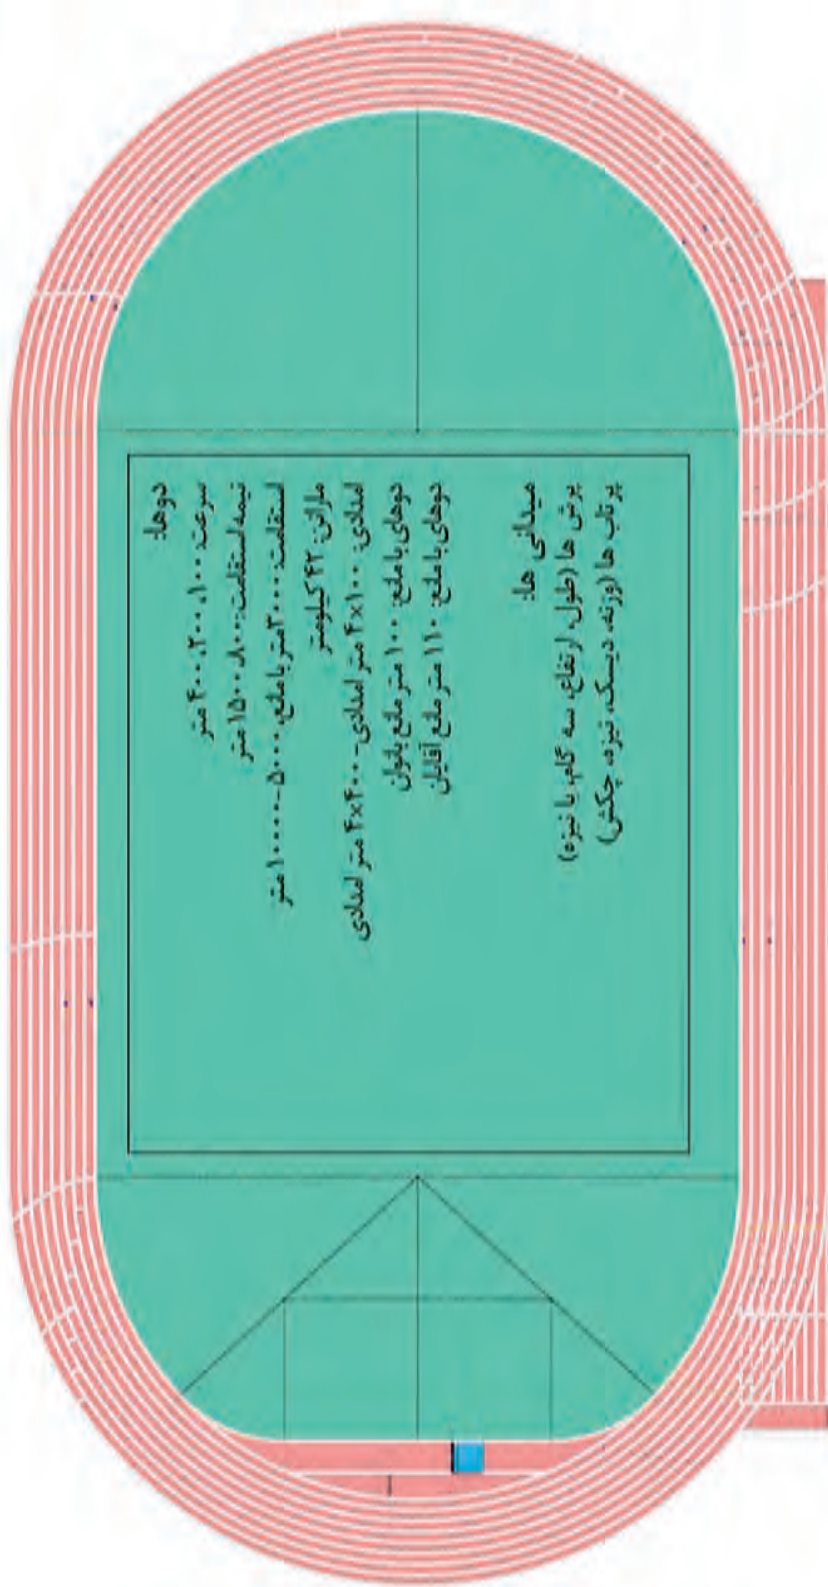 دوها:
سرعت: ۱۰۰، ۲۰۰، ۴۰۰ متر
نیمه استقامت: ۸۰۰، ۱۵۰۰ متر
استقامت: ۳۰۰۰ متر با مانع، ۵۰۰۰-۱۰۰۰۰ متر
ماراتن: ۴۲ کیلومتر
امدادی: ۴×۱۰۰ متر امدادی- ۴×۴۰۰ متر امدادی
دوهای با مانع: ۱۰۰ متر مانع بانوان
دوهای با مانع: ۱۱۰ متر مانع آقایان
میدانی ها:
پرش ها (طول، ارتفاع، سه گام، با نیزه)
پرتاب ها (وزنه، دیسک، نیزه، چکش)